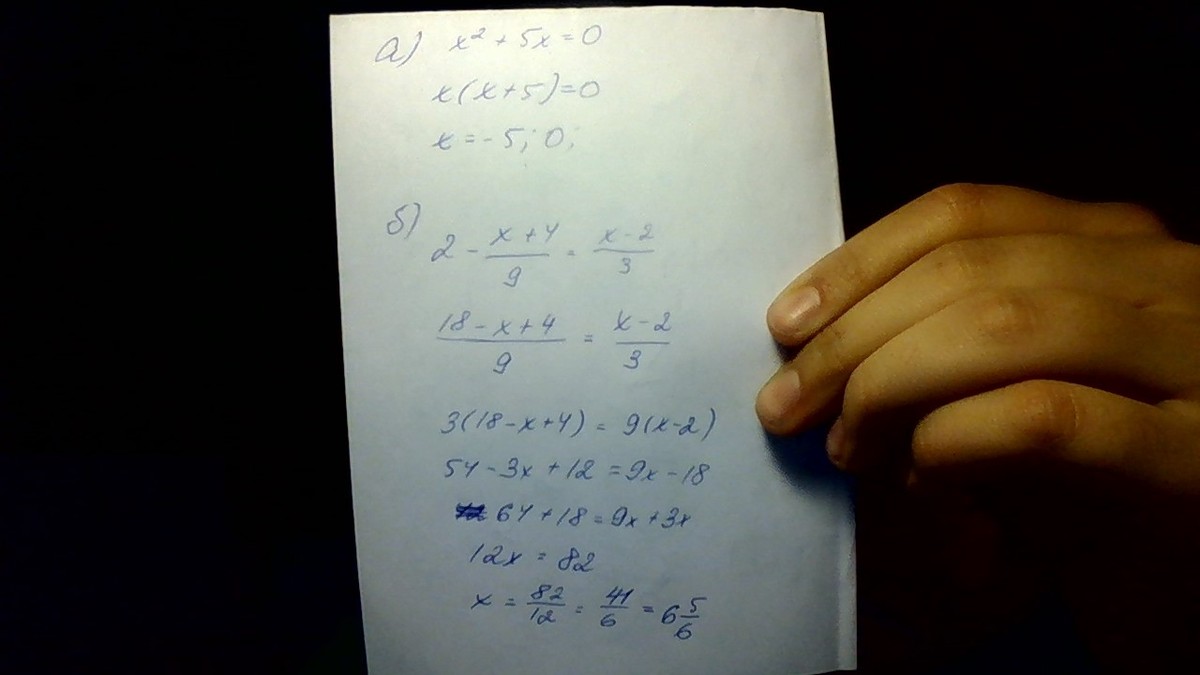 а) x² + 5x = 0
x(x+5)=0
x = -5; 0;
б) 2 - (x+4)/9 = (x-2)/3
(18-x+4)/9 = (x-2)/3
3(18-x+4) = 9(x-2)
54-3x+12 = 9x-18
64+18 = 9x+3x
12x = 82
x = 82/12 = 41/6 = 6 5/6